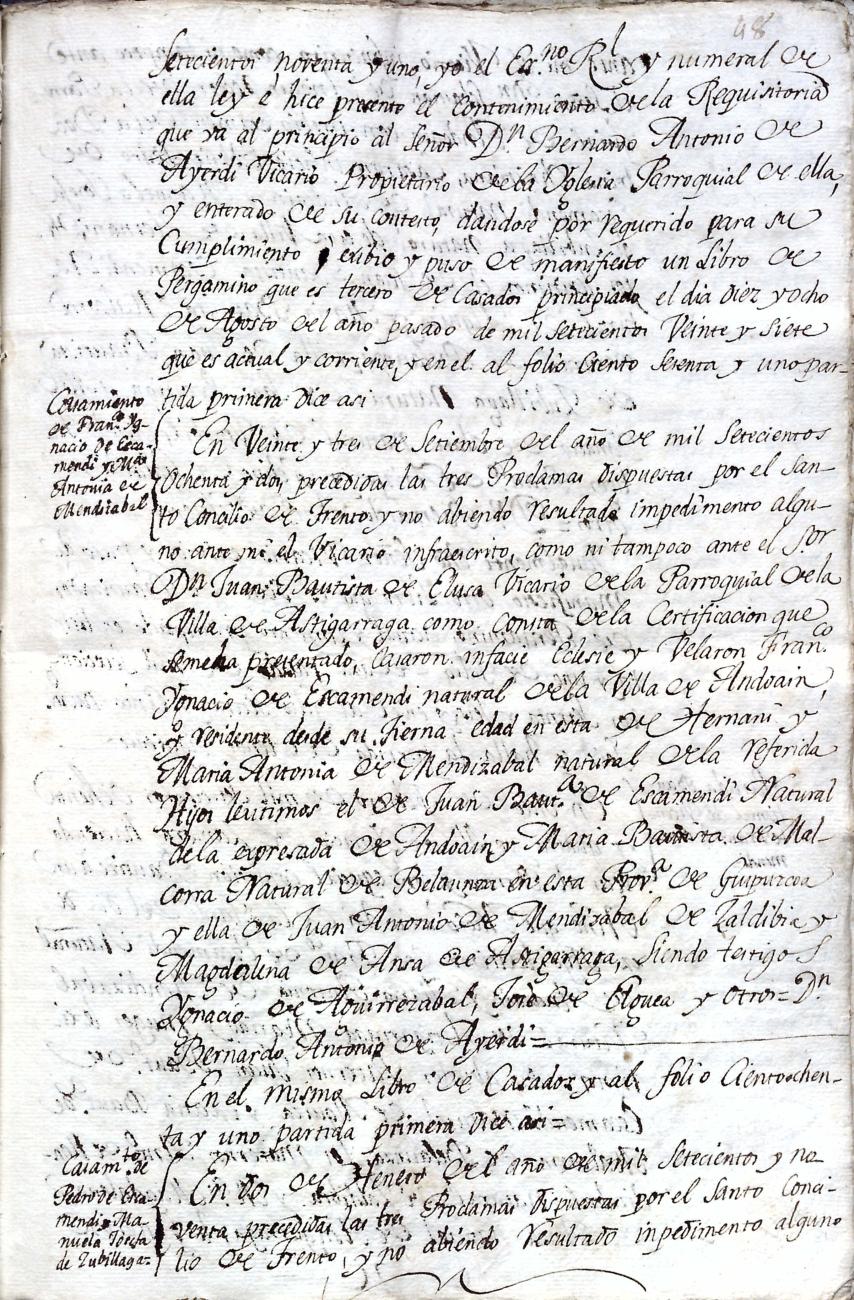 48
Setecientos noventa y uno, yo el Es.no R.l y numeral de
ella ley è hice presente el contenimiento de la Requisitoria
que va al principio al Señor D.n Bernardo Antonio de
Ayerdi Vicario Propietario de la Yglesia Parroquial de ella,
y enterado de su contexto, dandose por requerido para su
Cumplimiento exibio y puso de manifiesto un Libro de
Pergamino que es tercero de Casados principiado el dia diez y ocho
de Agosto del año pasado de mil setecientos Veinte y siete
que es actual y corriente, y en el al folio Ciento setenta y uno par-
tida primera dice asi
Casamiento
de Fran.co Yg-
nacio de Esca-
mendi y M.a
Antonia de
Mendizabal
En Veinte y tres de Setiembre del año de mil setecientos
Ochenta y dos, precedidas las tres Proclamas dispuestas por el San-
to Concilio de Trento, y no abiendo resultado impedimento algu-
no ante mi el Vicario infraescrito, como ni tampoco ante el S.or
D.n Juan Bautista de Elusa Vicario de la Parroquial de la
Villa de Astigarraga como consta de la Certificacion que
se me ha presentado, casaron infacie Eclesie y Velaron Fran.co
Ygnacio de Escamendi natural de la Villa de Andoain,
y residente desde su tierna edad en esta de Hernani y
Maria Antonia de Mendizabal natural de la referida
Hijos lexitimos el de Juan Baut.a de Escamendi Natural
de la expresada de Andoain y Maria Bautista de Mal-
corra Natural de Belaunza en esta Prov.a de Guipuzcoa
y ella de Juan Antonio de Mendizabal de Zaldibia y
Magdalena de Ansa de Astigarraga, siendo testigos
Ygnacio de Aguirrezabal, Jose de Elguea y otros = D.n
Bernardo Antonio de Ayerdi =
En el mismo Libro de Casados y al folio Ciento ochen-
ta y uno partida primera dice asi =
Casam.to de
Pedro de Esca-
mendi y Ma-
nuela Josefa
de Zubillaga =
En dos de Henero del año de mil setecientos y no-
venta precedidas las tres Proclamas dispuestas por el Santo Conci-
lio de Trento, y no abiendo resultado inpedimento alguno